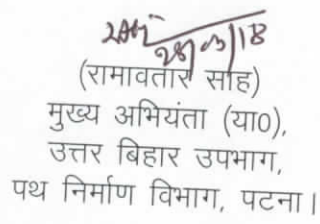 28/03/18
(रामावतार साह)
मुख्य अभियंता (या०),
उत्तर बिहार उपभाग,
पथ निर्माण विभाग, पटना।